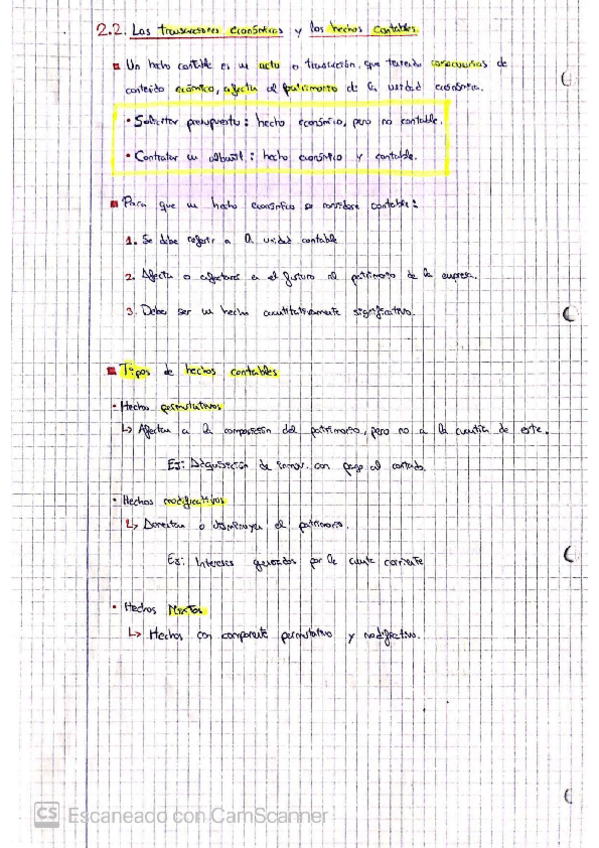 2.2. Las transacciones económicas y los hechos contables.
Un hecho contable es un acto o transacción, que teniendo consecuencias de
contenido económico, afecta al patrimonio de la unidad económica.
• Solicitar presupuesto: hecho económico, pero no contable.
• Contratar un albañil: hecho económico y contable.
Para que un hecho económico se considere contable:
1. Se debe referir a la unidad contable
2. Afecta o afectará en el futuro al patrimonio de la empresa.
3. Debe ser un hecho cuantitativamente significativo.
Tipos de hechos contables
• Hechos permutativos
↳ Afectan a la composición del patrimonio, pero no a la cuantía de este.
Ej: Adquisición de inmov. con pago al contado.
• Hechos modificativos
↳ Aumentan o disminuyen el patrimonio.
Ej: Intereses generados por la cuenta corriente
• Hechos Mixtos
↳ Hechos con componente permutativo y modificativo.
CS Escaneado con CamScanner